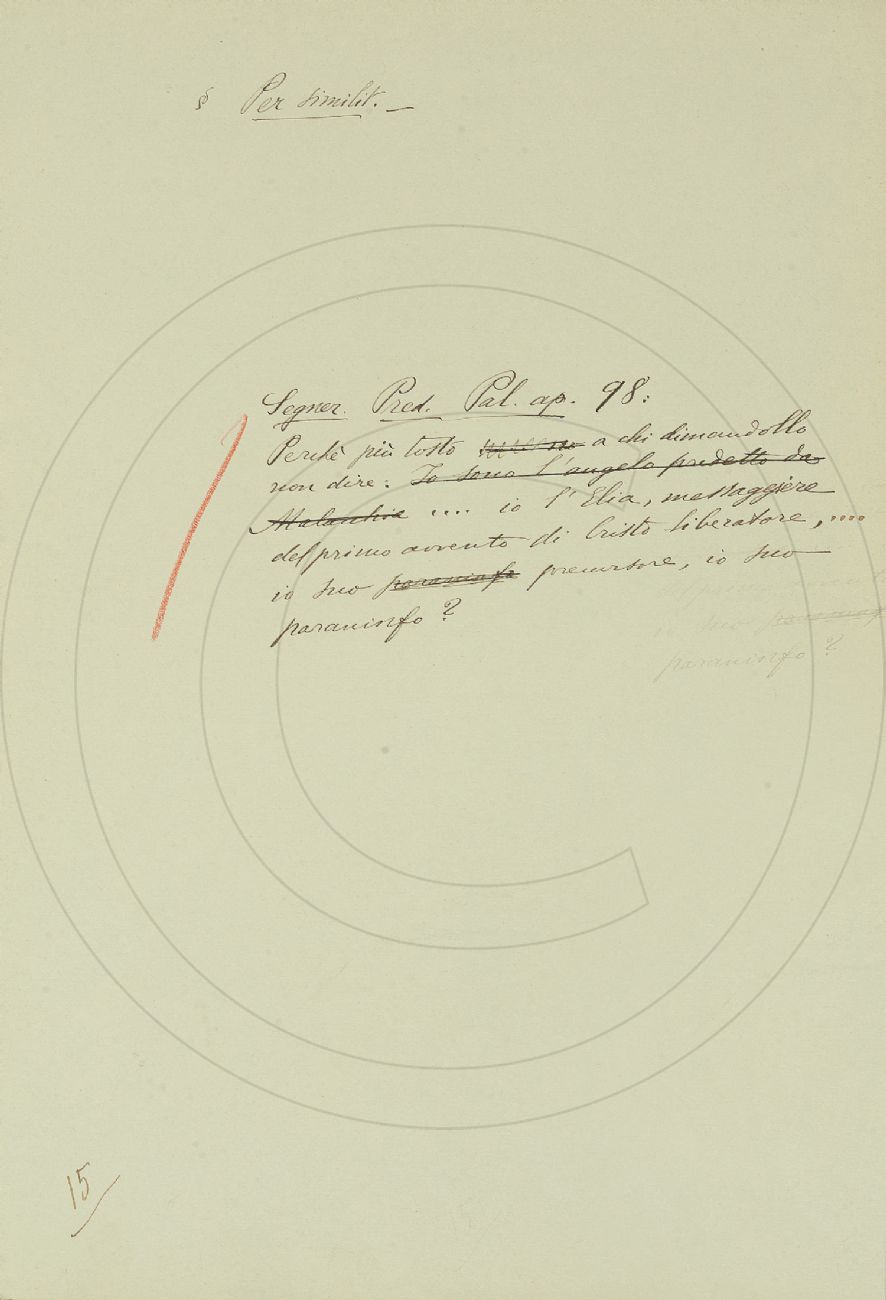 § Per similit. —
Segner. Pred. Pal. ap. 98:
Perchè più tosto a chi dimandollo
non dire: Io sono l'angelo predetto da
Malachia .... io l'Elia, messaggiere
del primo avvento di Cristo liberatore, ....
io suo paraninfo precursore, io suo
paraninfo?
paraninfo?
15